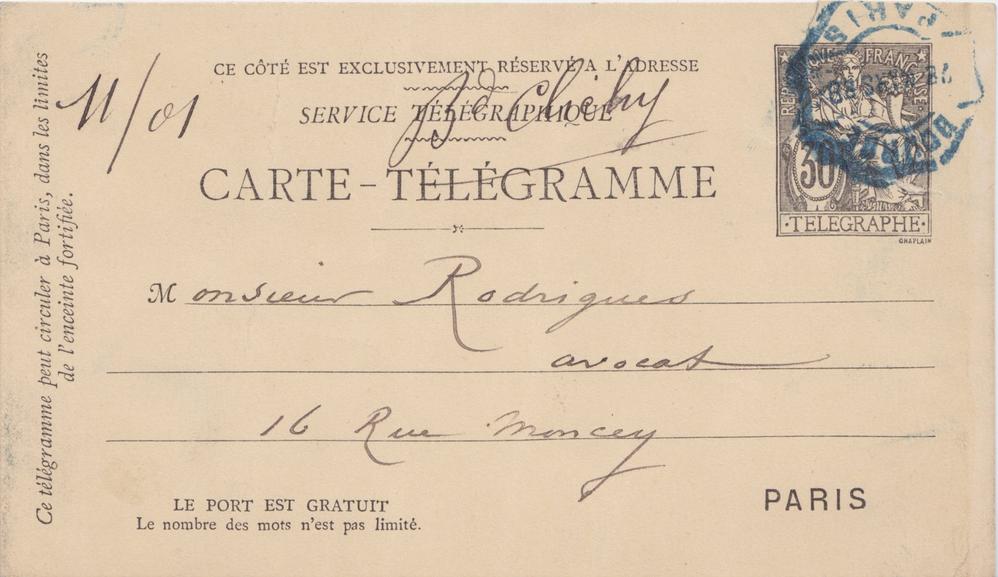 CE CÔTÉ EST EXCLUSIVEMENT RÉSERVÉ A L'ADRESSE
SERVICE TÉLÉGRAPHIQUE
Bd Clichy
CARTE-TÉLÉGRAMME
Monsieur Rodrigues
avocat
16 Rue Moncey
PARIS
LE PORT EST GRATUIT
Le nombre des mots n'est pas limité.
Ce télégramme peut circuler à Paris, dans les limites
de l'enceinte fortifiée.
11/01
REPUBLIQUE FRANÇAISE
30
·TELEGRAPHE·
CHAPLAIN
PARIS